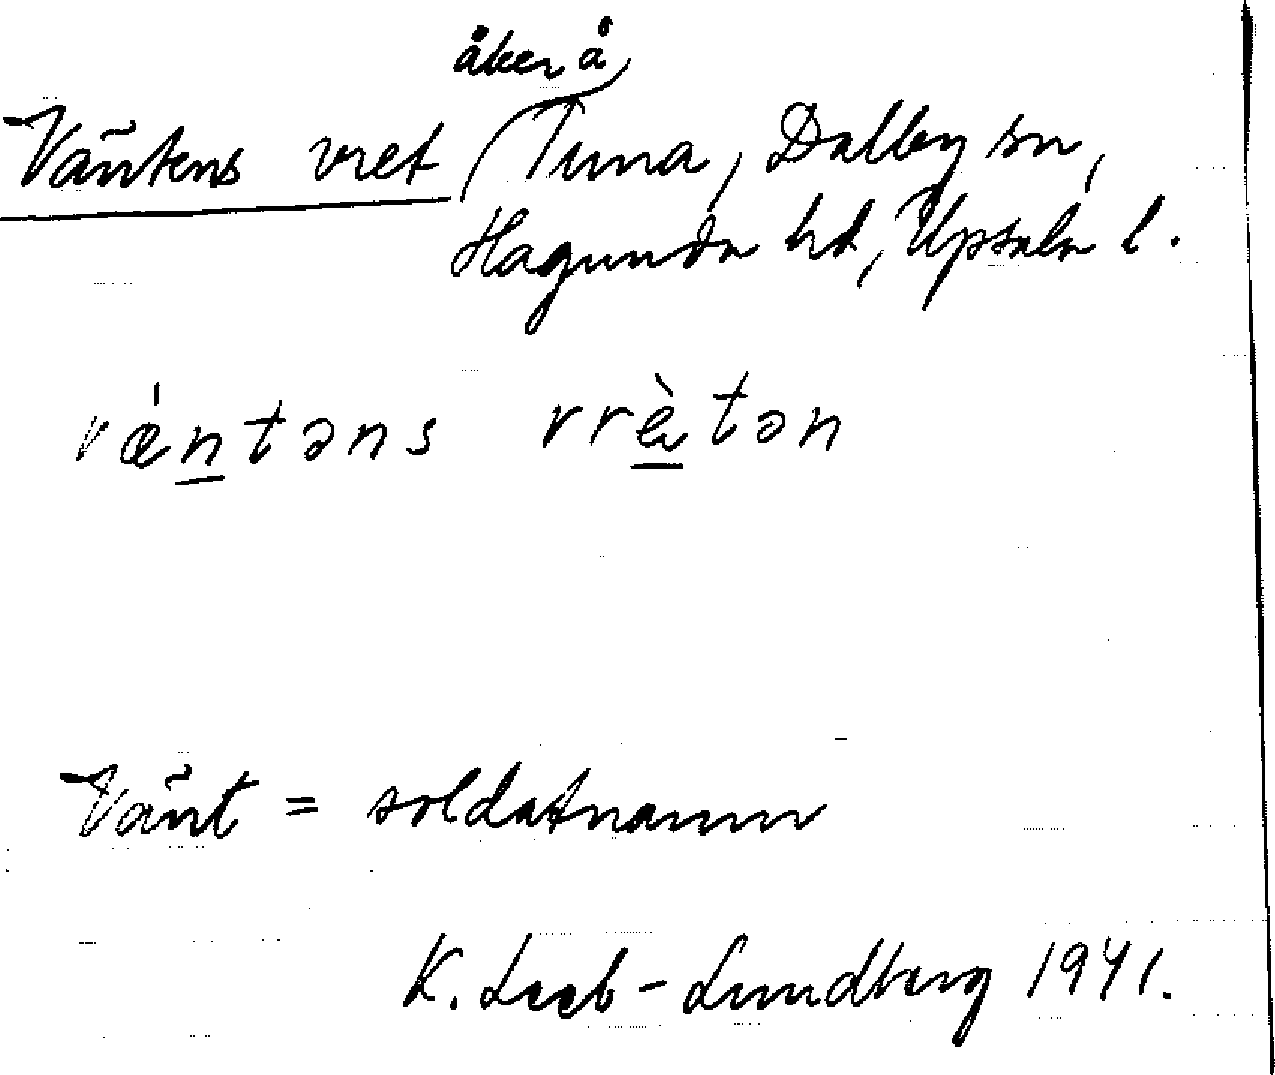 åker å
Väntens vret Tuna, Dalby sn,
Hagunda hd, Upsala l.
vǽn̲təns vrè̲tən
Vänt = soldatnamn
K. Leeb-Lundberg 1941.